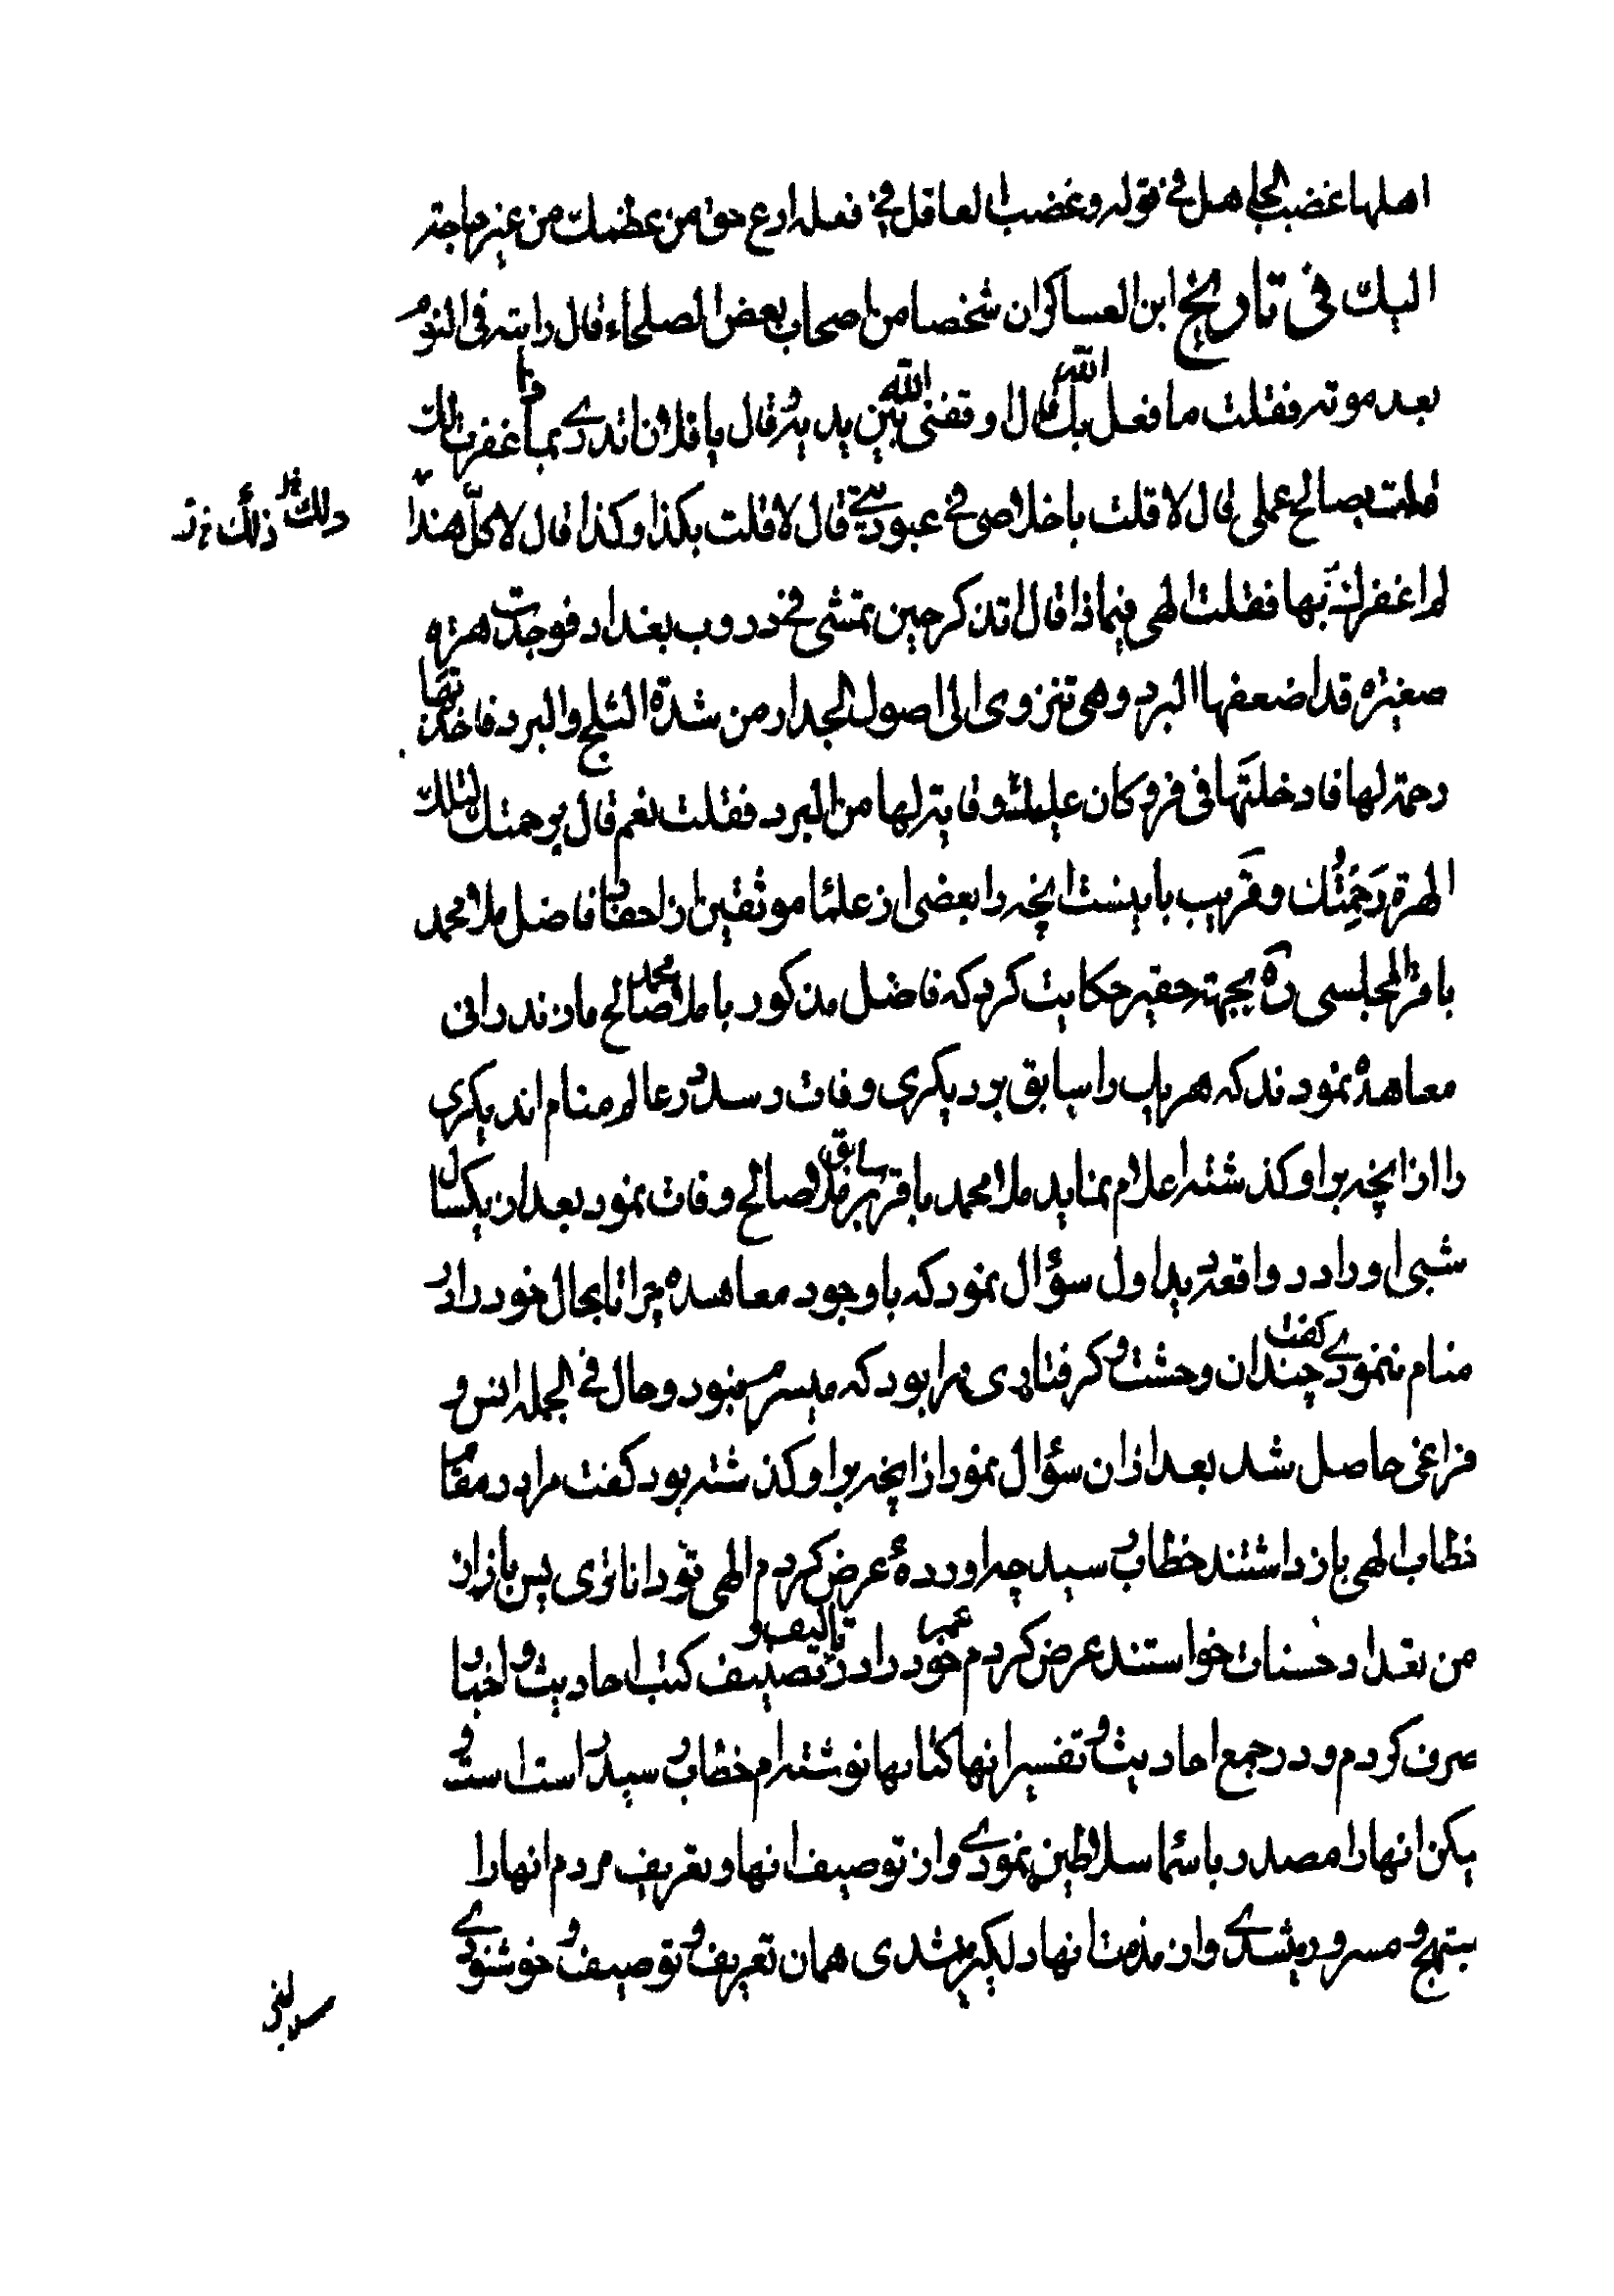 اهلها غضب الجاهل فی قوله وغضب العاقل فی فعله ارع حق من عظمك من غیر حاجته
الیك فی تاریخ ابن العساکر ان شخصا من اصحاب بعض الصلحاء قال رایته فی النوم
بعد موته فقلت ما فعل الله بك قال اوقفنی الله بین یدیه وقال یا فلان اتدری بماذا غفرت لك
قلت بصالح عملی قال لا قلت باخلاصی فی عبودیتی قال لا قلت بکذا وکذا قال لا کل هذا
لم اغفر لك بها فقلت الهی فبماذا قال اتذکر حین تمشی فی دروب بغداد فوجدت هرة
صغیره قد اضعفها البرد وهی تنزوی الی اصول الجدار من شدة الثلج والبرد فاخذتها
رحمة لها فادخلتها فی فرو کان علیك وقایة لها من البرد فقلت نعم قال برحمتك لتلك
الهرة رَحِمْتُك و قریب باینست انچه را بعضی از علما موثقین از احفاد فاضل ملا محمد
باقر المجلسی ره بجهة حقیر حکایت کرد که فاضل مذکور با ملا محمد صالح مازندرانی
معاهدهٔ نمودند که هر یك را سابق بر دیکری وفات رسد در عالم منام ان دیکری
را از انچه بر او کذشته اعلام نماید ملا محمد باقر سابق بر ملا صالح وفات نمود بعد از یکسال
شبی او را در واقعه دید اول سؤال نمود که با وجود معاهده چرا تا بحال خود را در
منام ننمودی کفت چندان وحشت و کرفتاری مرا بود که میسرم نبود و حال فی الجمله انس و
فراغی حاصل شد بعد از ان سؤال نمود از انچه بر او کذشته بود کفت مرا در مقام
خطاب الهی باز داشتند خطاب رسید چه اوردهٔ عرض کردم الهی تو داناتری پس باز از
من تعداد حسنات خواستند عرض کردم عمر خود را در تالیف و تصنیف کتب احادیث و اخبار
صرف کردم و در جمع احادیث و تفسیر انها کتابها نوشته ام خطاب رسید راست است و
لیکن انها را مصدر باسماء سلاطین نمودی و از توصیف انها و تعریف مردم انها را
مبتهج و مسرور میشدی و از مذمت انها دلکیر میشدی همان تعریف و توصیف و خوشنودی